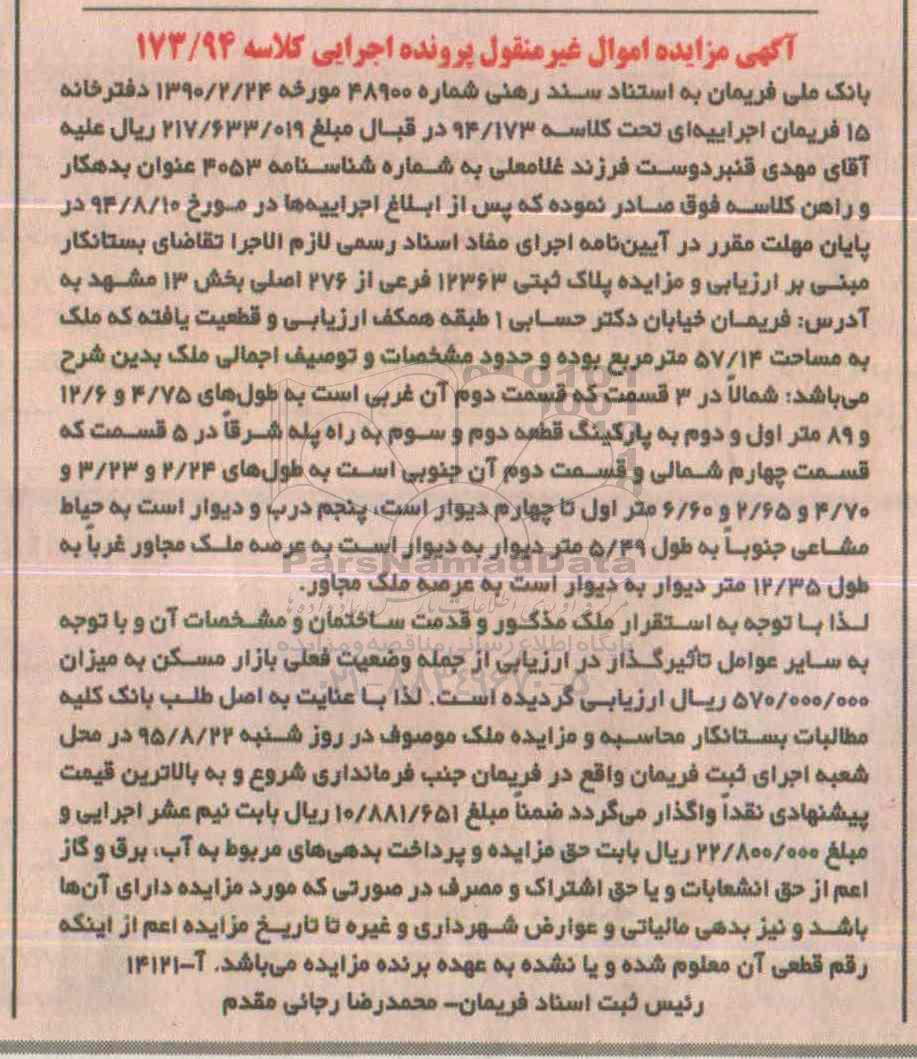 آگهی مزایده اموال غیرمنقول پرونده اجرایی کلاسه ۱۷۳/۹۴
بانک ملی فریمان به استناد سند رهنی شماره ۴۸۹۰۰ مورخه ۱۳۹۰/۲/۲۴ دفترخانه
۱۵ فریمان اجراییه‌ای تحت کلاسه ۹۴/۱۷۳ در قبال مبلغ ۲۱۷/۶۳۳/۰۱۹ ریال علیه
آقای مهدی قنبردوست فرزند غلامعلی به شماره شناسنامه ۴۰۵۳ عنوان بدهکار
و راهن کلاسه فوق صادر نموده که پس از ابلاغ اجراییه‌ها در مورخ ۹۴/۸/۱۰ در
پایان مهلت مقرر در آیین‌نامه اجرای مفاد اسناد رسمی لازم الاجرا تقاضای بستانکار
مبنی بر ارزیابی و مزایده پلاک ثبتی ۱۲۳۶۳ فرعی از ۲۷۶ اصلی بخش ۱۳ مشهد به
آدرس: فریمان خیابان دکتر حسابی ۱ طبقه همکف ارزیابی و قطعیت یافته که ملک
به مساحت ۵۷/۱۴ مترمربع بوده و حدود مشخصات و توصیف اجمالی ملک بدین شرح
می‌باشد: شمالاً در ۳ قسمت که قسمت دوم آن غربی است به طول‌های ۴/۷۵ و ۱۲/۶
و ۸۹ متر اول و دوم به پارکینگ قطعه دوم و سوم به راه پله شرقاً در ۵ قسمت که
قسمت چهارم شمالی و قسمت دوم آن جنوبی است به طول‌های ۲/۲۴ و ۳/۲۳ و
۴/۷۰ و ۲/۶۵ و ۶/۶۰ متر اول تا چهارم دیوار است، پنجم درب و دیوار است به حیاط
مشاعی جنوباً به طول ۵/۴۹ متر دیوار به دیوار است به عرصه ملک مجاور غرباً به
طول ۱۲/۳۵ متر دیوار به دیوار است به عرصه ملک مجاور.
لذا با توجه به استقرار ملک مذکور و قدمت ساختمان و مشخصات آن و با توجه
به سایر عوامل تأثیرگذار در ارزیابی از جمله وضعیت فعلی بازار مسکن به میزان
۵۷۰/۰۰۰/۰۰۰ ریال ارزیابی گردیده است. لذا با عنایت به اصل طلب بانک کلیه
مطالبات بستانکار محاسبه و مزایده ملک موصوف در روز شنبه ۹۵/۸/۲۲ در محل
شعبه اجرای ثبت فریمان واقع در فریمان جنب فرمانداری شروع و به بالاترین قیمت
پیشنهادی نقداً واگذار می‌گردد ضمناً مبلغ ۱۰/۸۸۱/۶۵۱ ریال بابت نیم عشر اجرایی و
مبلغ ۲۲/۸۰۰/۰۰۰ ریال بابت حق مزایده و پرداخت بدهی‌های مربوط به آب، برق و گاز
اعم از حق انشعابات و یا حق اشتراک و مصرف در صورتی که مورد مزایده دارای آن‌ها
باشد و نیز بدهی مالیاتی و عوارض شهرداری و غیره تا تاریخ مزایده اعم از اینکه
رقم قطعی آن معلوم شده و یا نشده به عهده برنده مزایده می‌باشد. آ-۱۴۱۲۱
رئیس ثبت اسناد فریمان- محمدرضا رجائی مقدم
ParsNamadData
پایگاه اطلاع رسانی مناقصه و مزایده